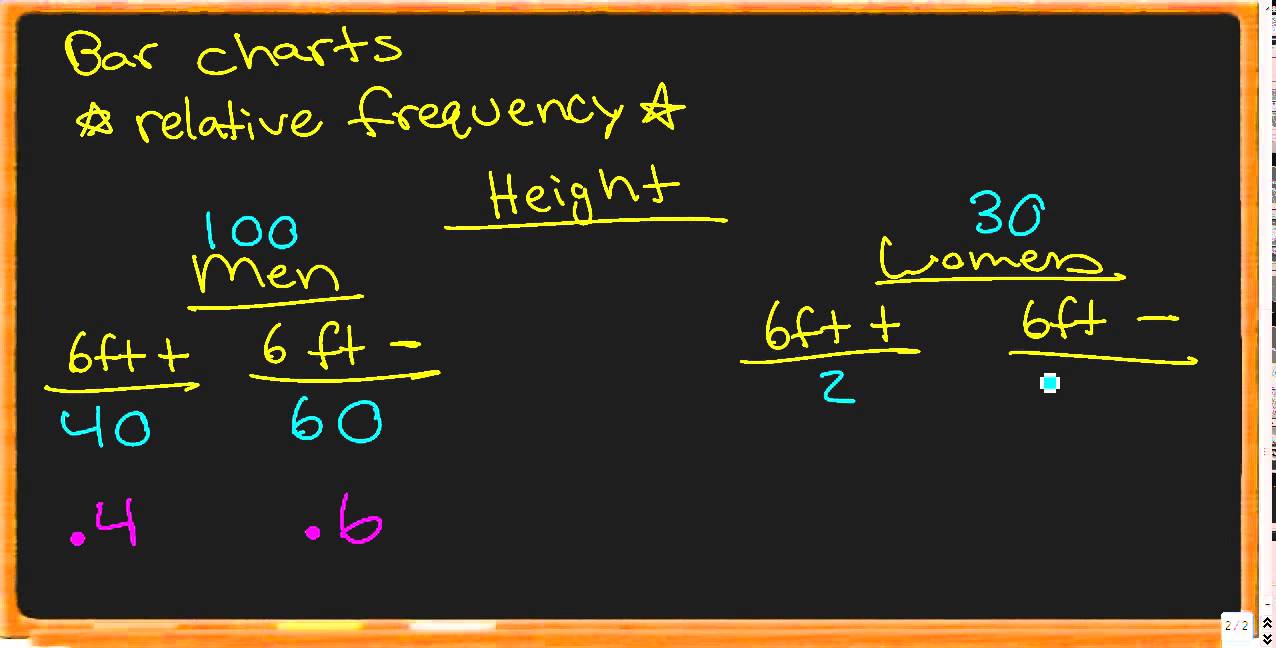 Bar charts
☆ relative frequency ☆
Height
100
Men
6ft + 6 ft -
40 60
.4 .6
30
Women
6ft + 6ft -
2
2/2